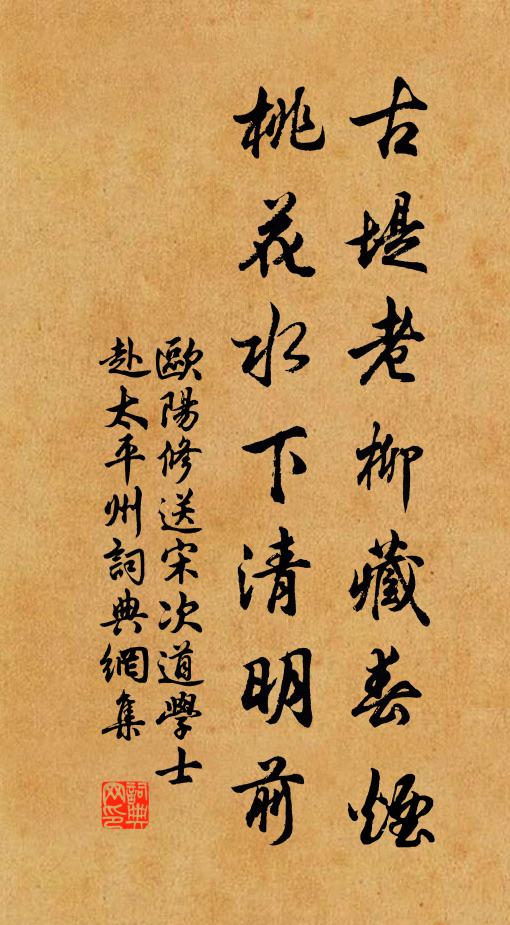 古堤老柳藏春煙
桃花水下清明前
歐陽修送宋次道學士
赴太平州詞典網集
詞典网印